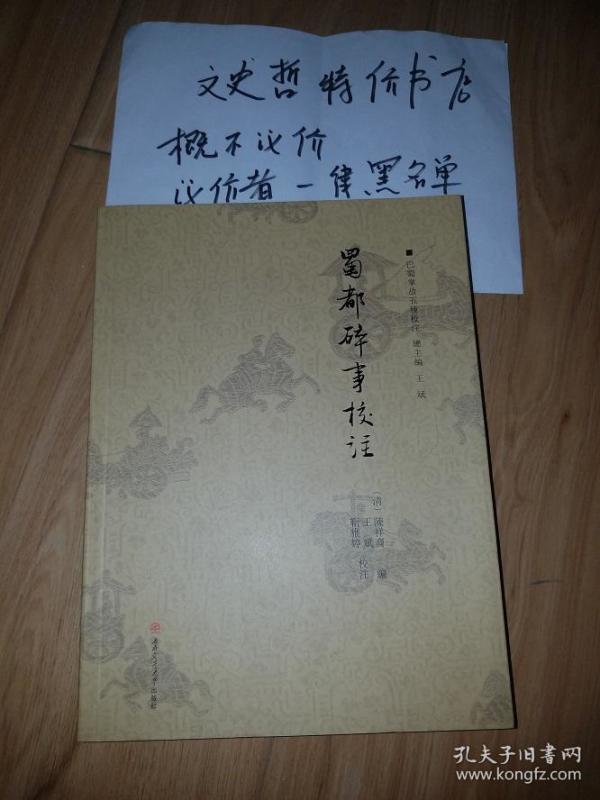 文史哲特价书店
概不议价
议价者一律黑名单
■巴蜀掌故五种校注 总主编 王斌
蜀都碎事校注
〔清〕陈祥裔 编
王斌
靳雅婷 校注
西南交通大学出版社
孔夫子旧书网
www.kongfz.com